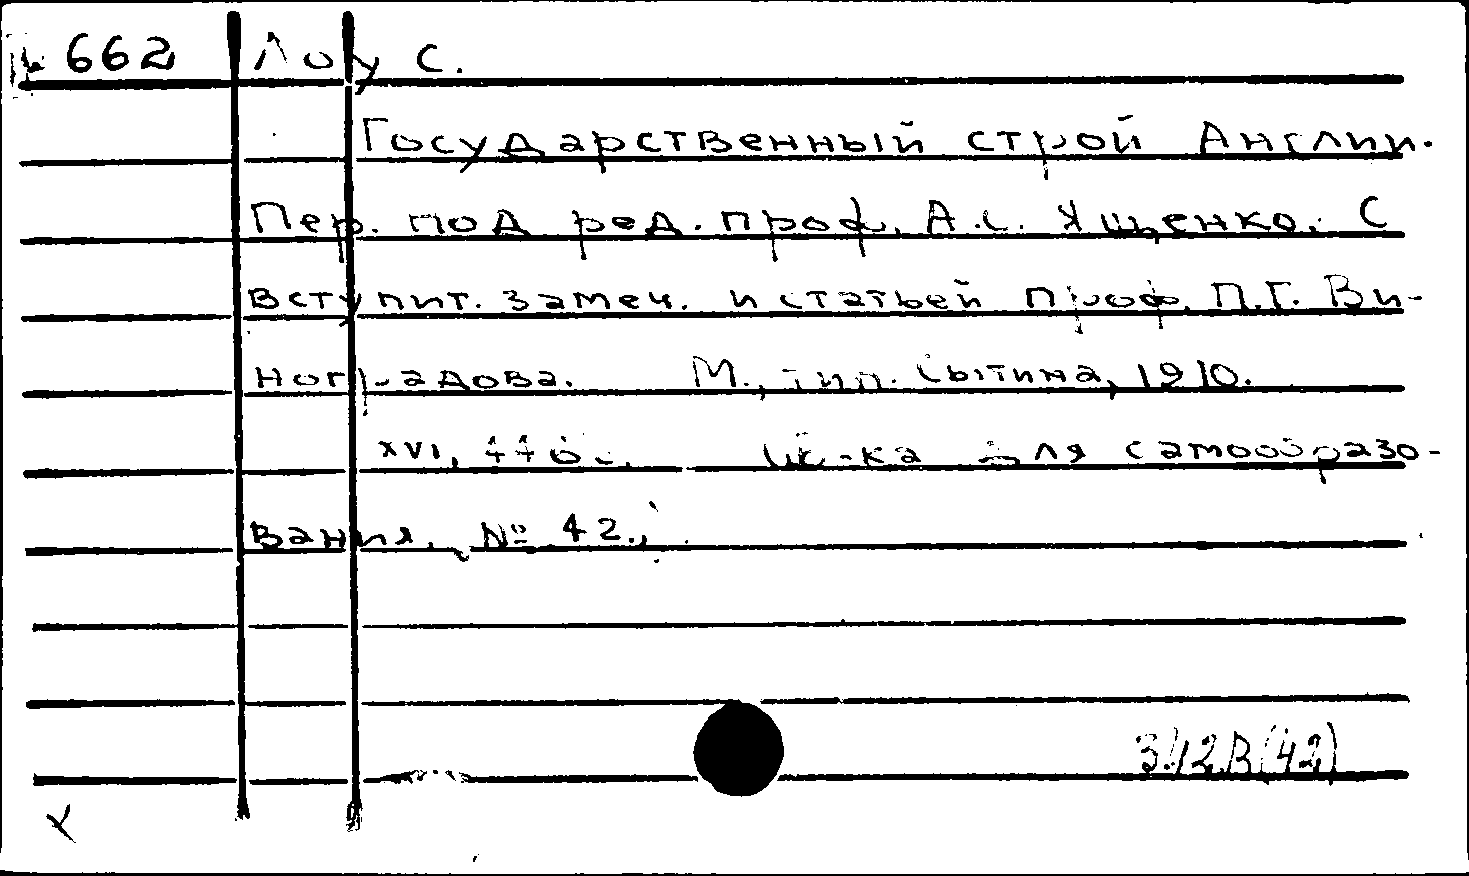 662 Лоу С.
Государственный строй Англии.
Пер. под ред. проф. А.С. Ященко. С
вступит. замеч. и статьей проф. П.Г. Ви-
ноградова. М., тип. Сытина, 1910.
XVI, с. для самообразо-
вания. № 42.